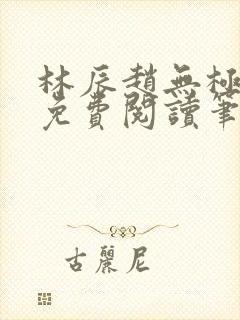 林辰趙無極
免費閱讀筆
古麗尼